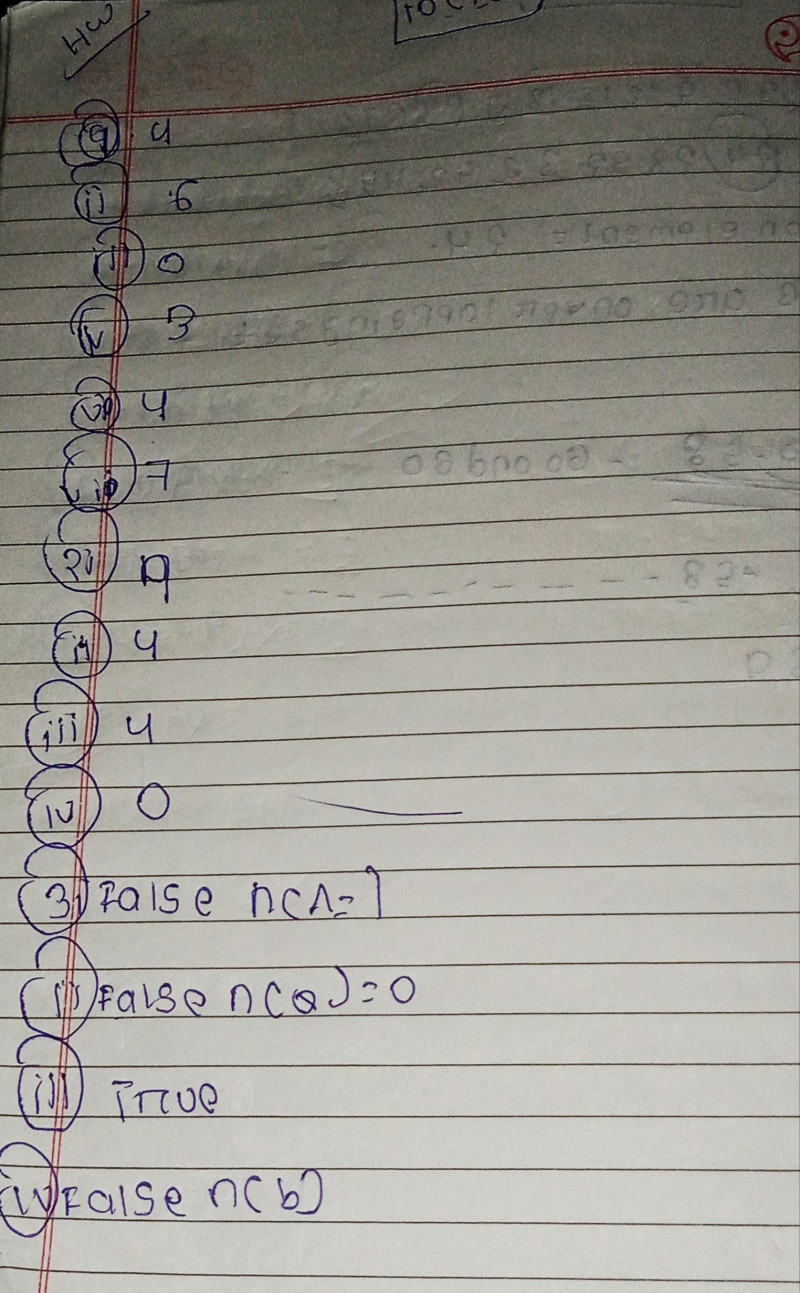 HW
4
ii 6
iii 0
iv 3
vi 4
7
2i
ii 4
iii 4
iv 0
3i False n(A=1
ii False n(Q)=0
iii True
iv False n(b)